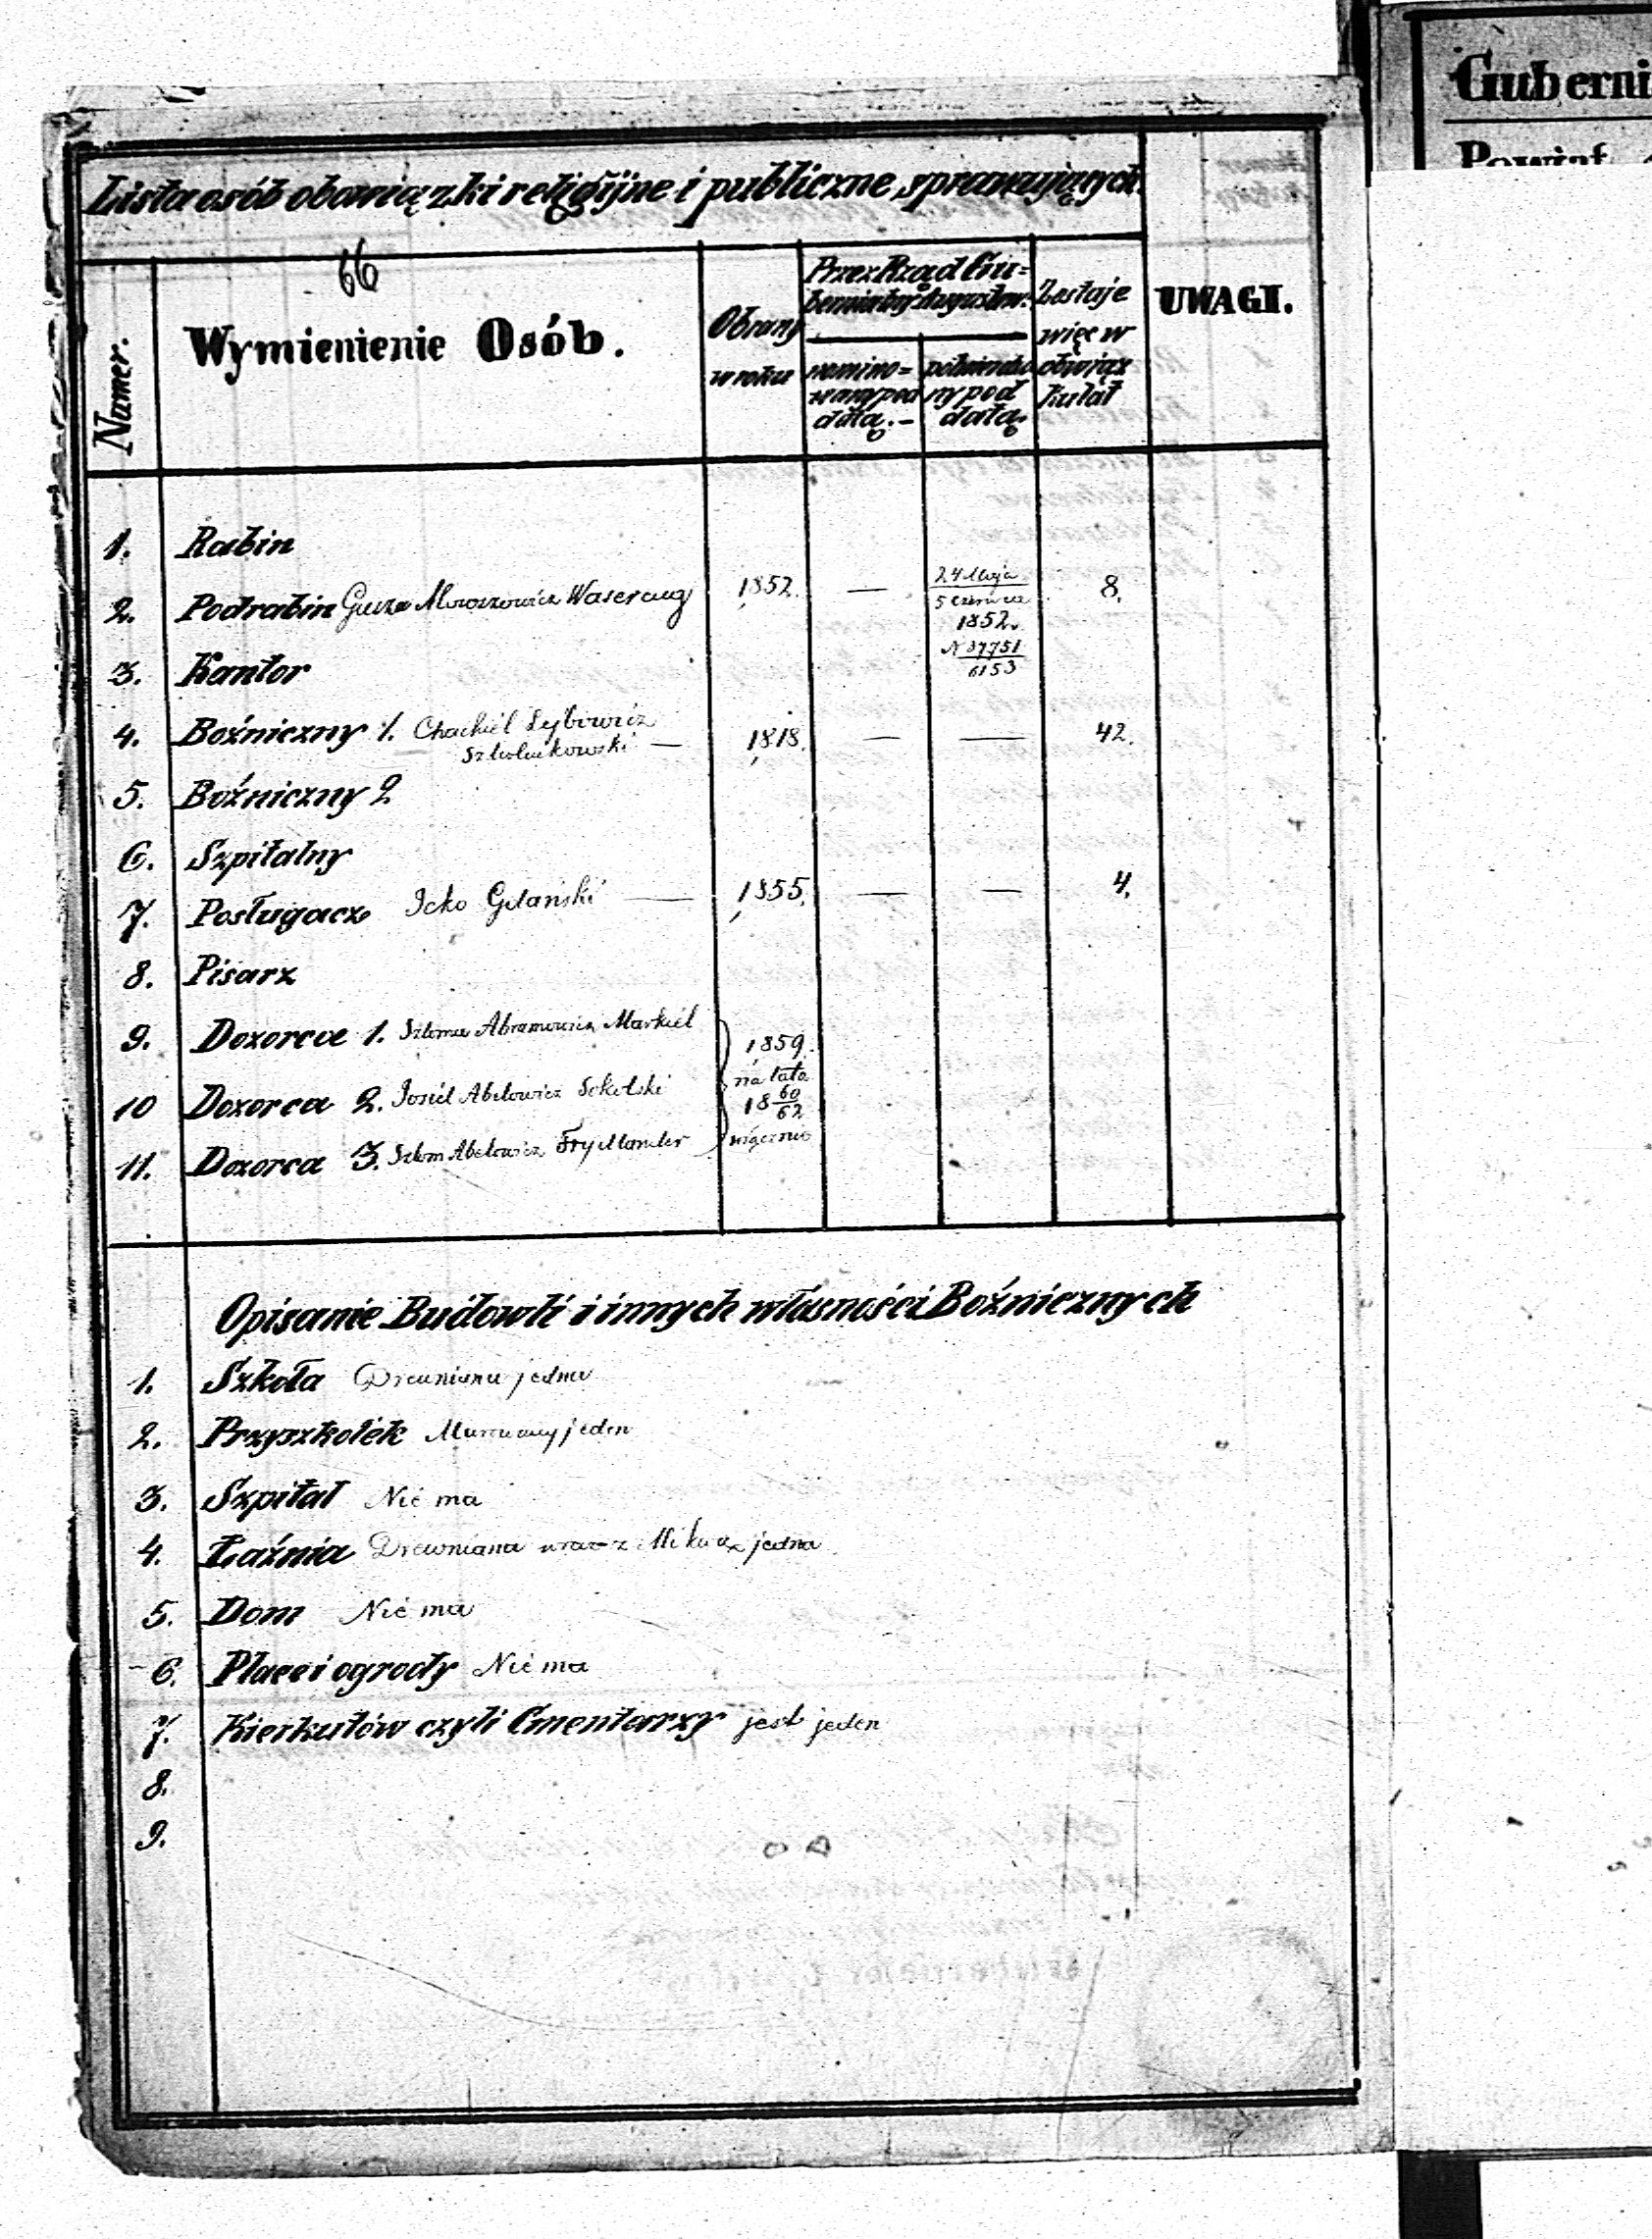 Guberni
Lista osób obowiązki religijne i publiczne sprawujących
66
Numer.
Wymienienie Osób.
Obrany
w roku
Przez Rząd Gu=
bernialny Augustow:
nomino=
wany pod
datą.-
potwierdzo
ny pod
datą
Zostaje
więc w
obwiąz
ku lat
UWAGI.
1. Rabin
2. Podrabin Moroszowicz Waserzug 1852. — 24 Maja
5 Czerwca
1852.
N 37751
6153
8.
3. Kantor
4. Bożniczny 1. Chackiel Leybowicz
Szkolnikowski — 1818. — — 42.
5. Bożniczny 2
6. Szpitalny
7. Posługacz Icko Gdański — 1855. — — 4.
8. Pisarz
9. Dozorca 1. Szloma Abramowicz Markiel 1859.
na lata
10 Dozorca 2. Josiel Abelowicz Sokolski 18 60
62
11. Dozorca 3. Szlom Abelowicz Frydlander włącznie
Opisanie Budowli i innych własności Bożnicznych
1. Szkoła Drewniana jedna
2. Przyszkołek Murowany jeden
3. Szpitał Nié ma
4. Łaźnia Drewniana wraz z Mikwą jedna
5. Dom Nié ma
6. Place i ogrody Nié ma
7. Kierkutów czyli Cmentarzy jest jeden
8.
9.